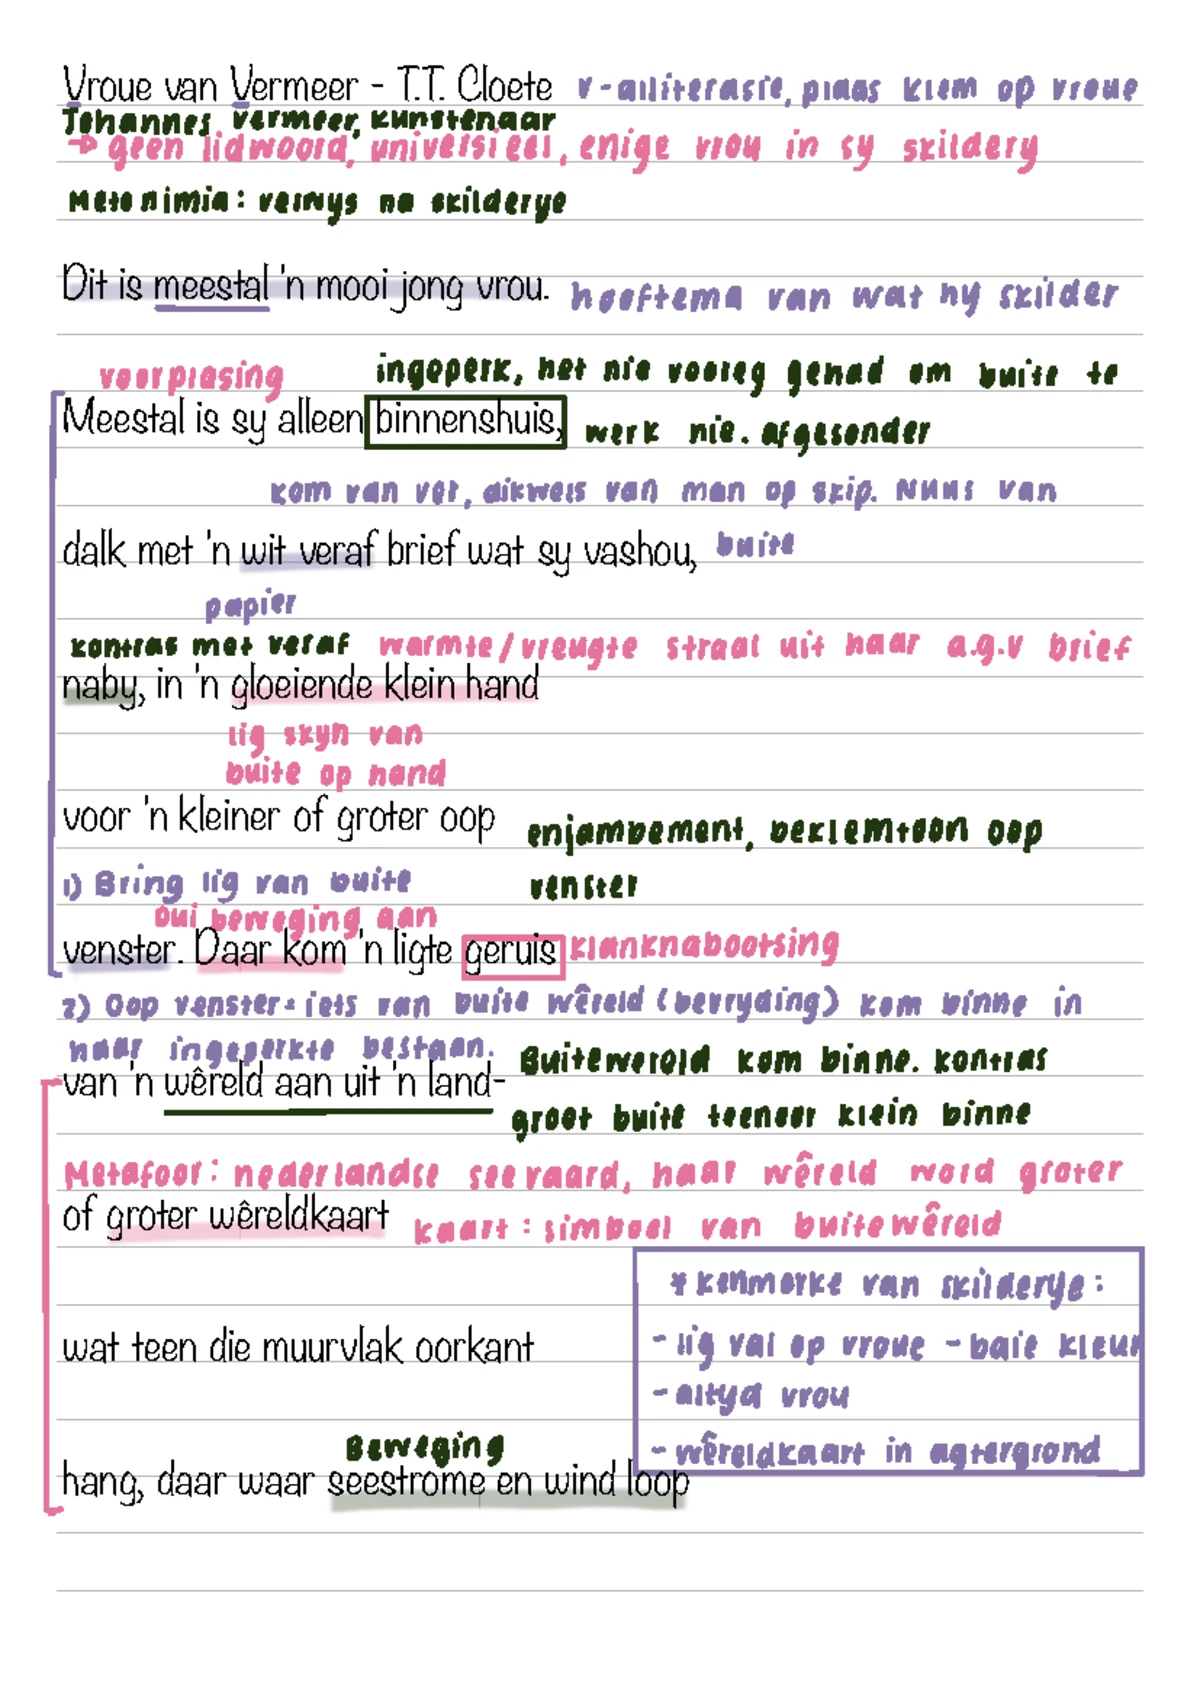 Vroue van Vermeer - T.T. Cloete v-alliterasie, plaas klem op vroue
Johannes Vermeer, kunstenaar
→ geen lidwoord, universieel, enige vrou in sy skildery
Metonimia: verwys na skilderye
Dit is meestal 'n mooi jong vrou. hooftema van wat hy skilder
voorplasing ingeperk, het nie voorreg gehad om buite te
Meestal is sy alleen binnenshuis, werk nie. afgesonder
kom van ver, dikwels van man op skip. Nuus van
dalk met 'n wit veraf brief wat sy vashou, buite
papier
kontras met veraf warmte/vreugte straal uit haar a.g.v brief
naby, in 'n gloeiende klein hand
lig skyn van
buite op hand
voor 'n kleiner of groter oop enjambement, beklemtoon oop
1) Bring lig van buite venster
Dui beweging aan
venster. Daar kom 'n ligte geruis klanknabootsing
2) Oop venster = iets van buite wêreld (bevryding) kom binne in
haar ingeperkte bestaan.
van 'n wêreld aan uit 'n land- Buitewereld kom binne. kontras
groot buite teeneer klein binne
Metafoor: nederlandse seevaard, haar wêreld word groter
of groter wêreldkaart kaart: simbool van buitewêreld
* kenmerke van skilderye:
wat teen die muurvlak oorkant - lig val op vroue - baie kleur
- altyd vrou
Beweging - wêreldkaart in agtergrond
hang, daar waar seestrome en wind loop